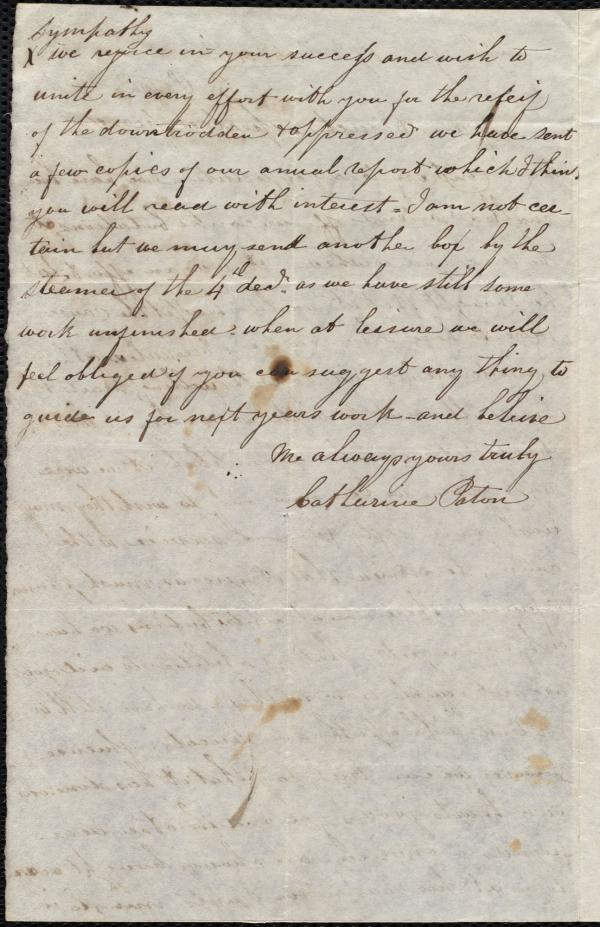 Sympathy
X we rejoice in your success and wish to
unite in every effort with you for the releif
of the downtrodden & oppressed we have sent
a few copies of our annual report which I think
you will read with interest = I am not cer-
tain but we may send another box by the
steamer of the 4th decr. as we have still some
work unfinished - when at leisure we will
feel obliged if you can suggest any thing to
guide us for next years work - and beleive
me always yours truly
Catherine Paton